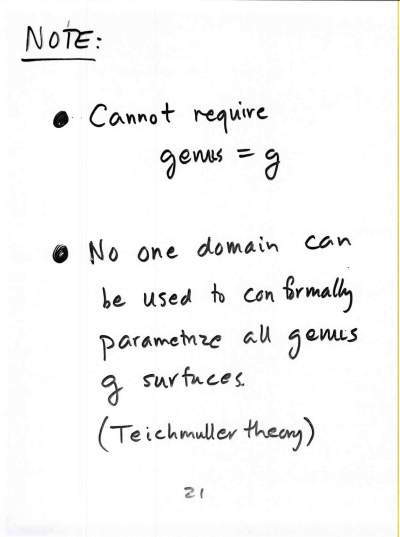 NOTE:
• Cannot require
genus = g
• No one domain can
be used to conformally
parametrize all genus
g surfaces.
(Teichmuller theory)
21